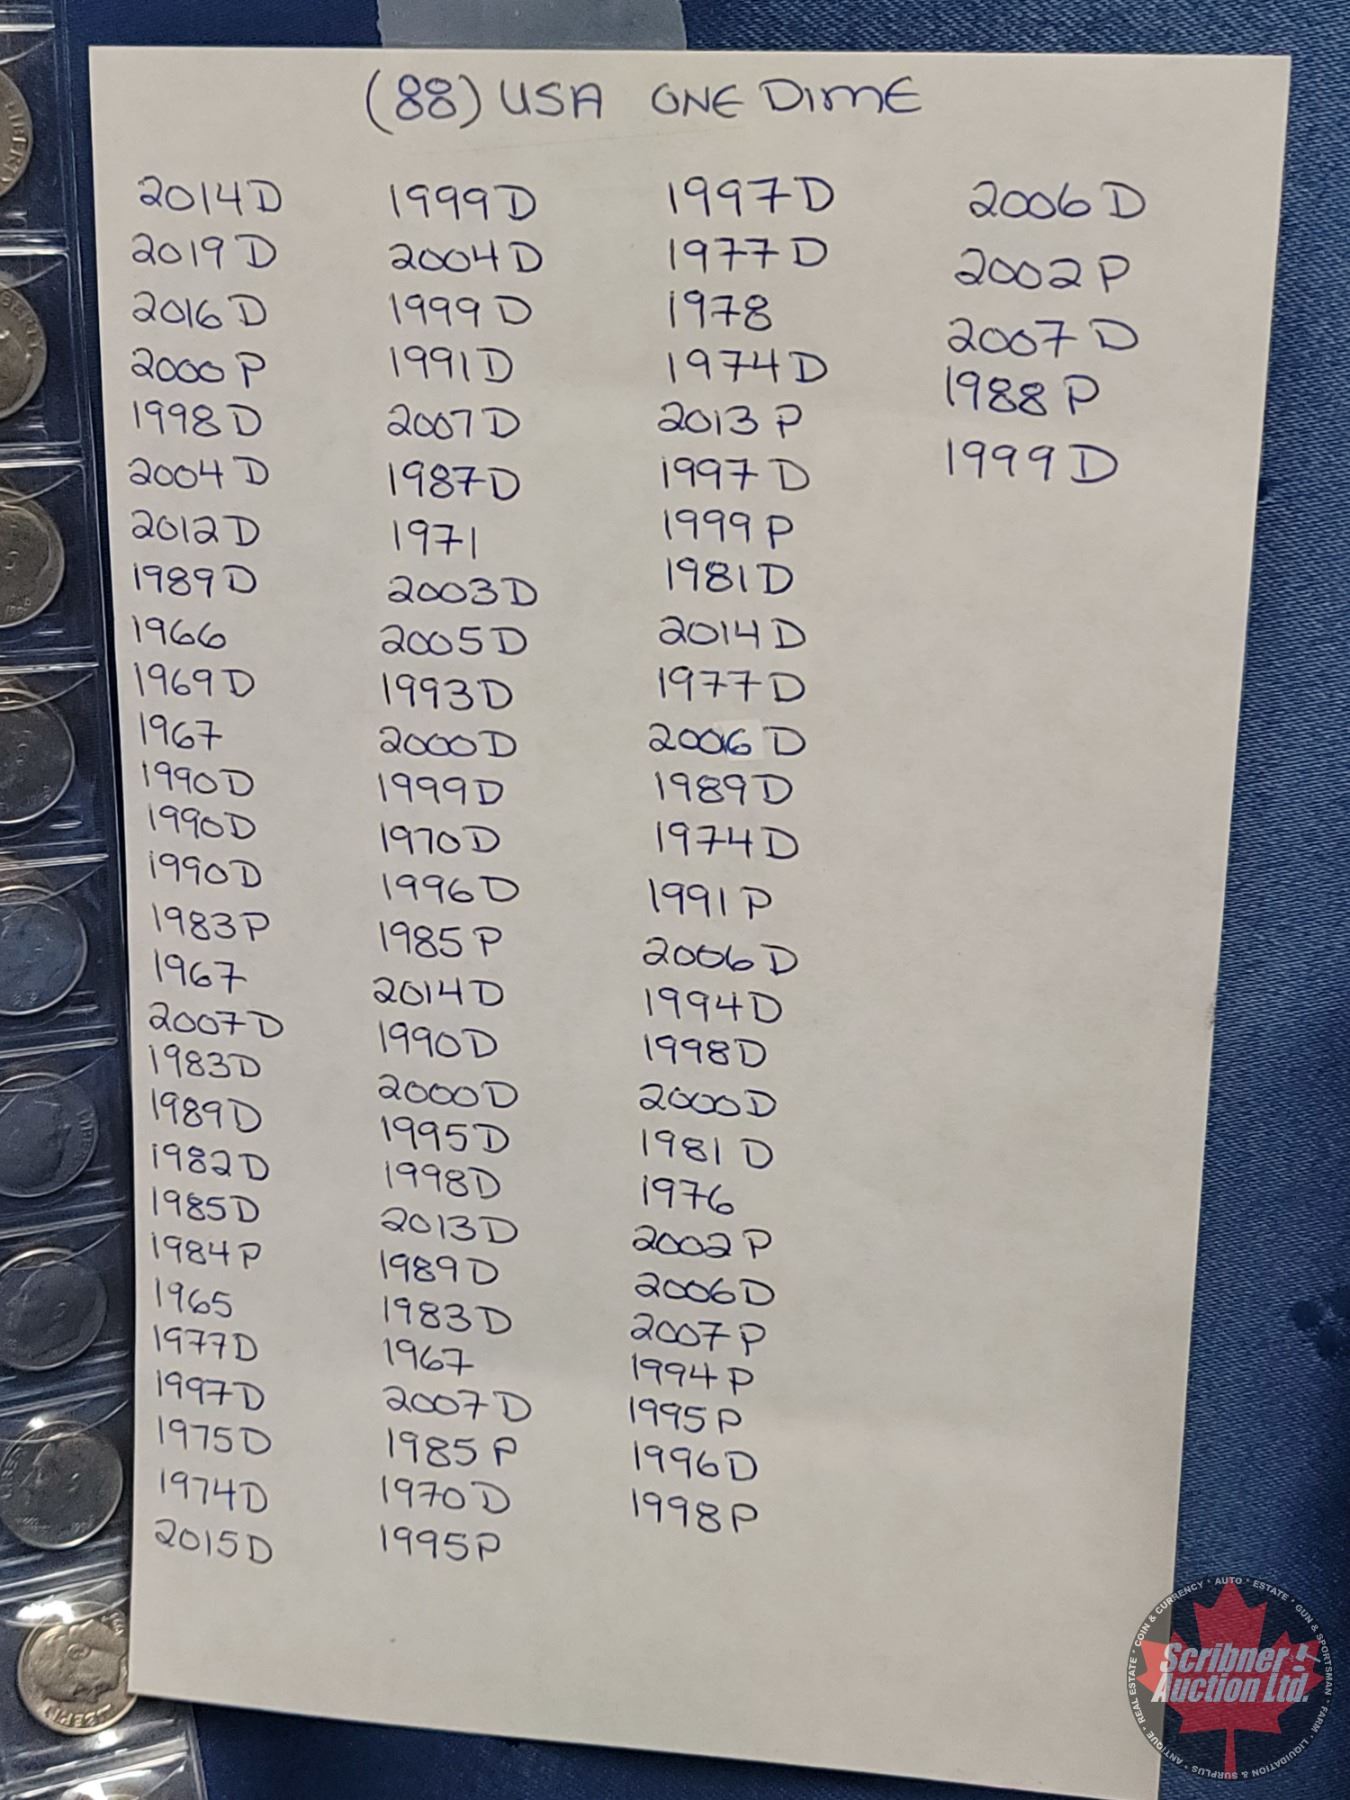 (88) USA ONE DIME
2014 D
2019 D
2016 D
2000 P
1998 D
2004 D
2012 D
1989 D
1966
1969 D
1967
1990 D
1990 D
1990 D
1983 P
1967
2007 D
1983 D
1989 D
1982 D
1985 D
1984 P
1965
1977 D
1997 D
1975 D
1974 D
2015 D
1999 D
2004 D
1999 D
1991 D
2007 D
1987 D
1971
2003 D
2005 D
1993 D
2000 D
1999 D
1970 D
1996 D
1985 P
2014 D
1990 D
2000 D
1995 D
1998 D
2013 D
1989 D
1983 D
1967
2007 D
1985 P
1970 D
1995 P
1997 D
1977 D
1978
1974 D
2013 P
1997 D
1999 P
1981 D
2014 D
1977 D
2006 D
1989 D
1974 D
1991 P
2006 D
1994 D
1998 D
2000 D
1981 D
1976
2002 P
2006 D
2007 P
1994 P
1995 P
1996 D
1998 P
2006 D
2002 P
2007 D
1988 P
1999 D
Scribner
Auction Ltd.
COIN & CURRENCY * AUTO * ESTATE * GUN & SPORTSMAN * FARM * LIQUIDATION & SURPLUS * ANTIQUE * REAL ESTATE *